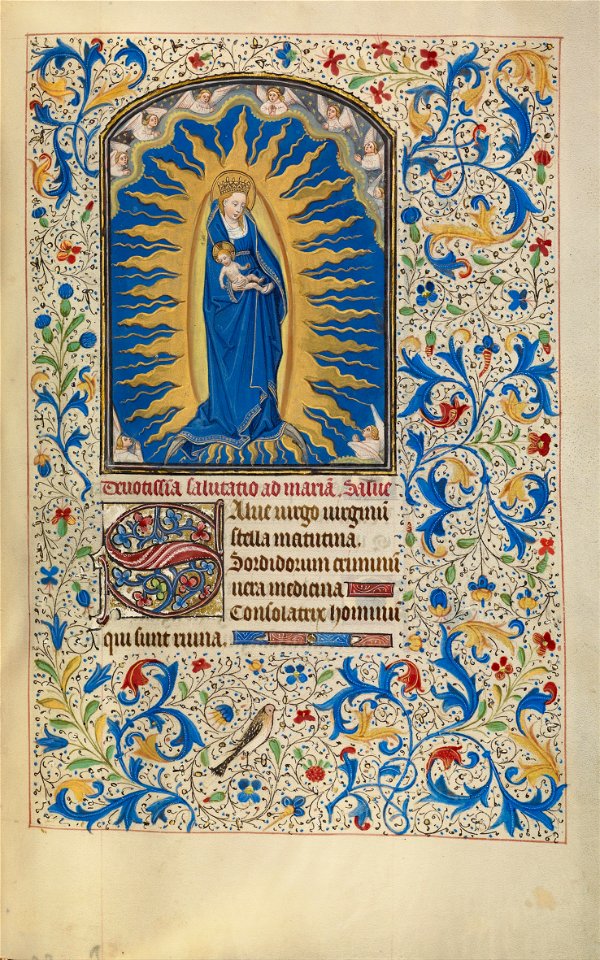 Deuotissīa salutatio ad mariā. Salue
Salue uirgo uirginū
stella matutina.
Sordidorum criminū
uera medicina
Consolatrix hominū
qui sunt in ruina.